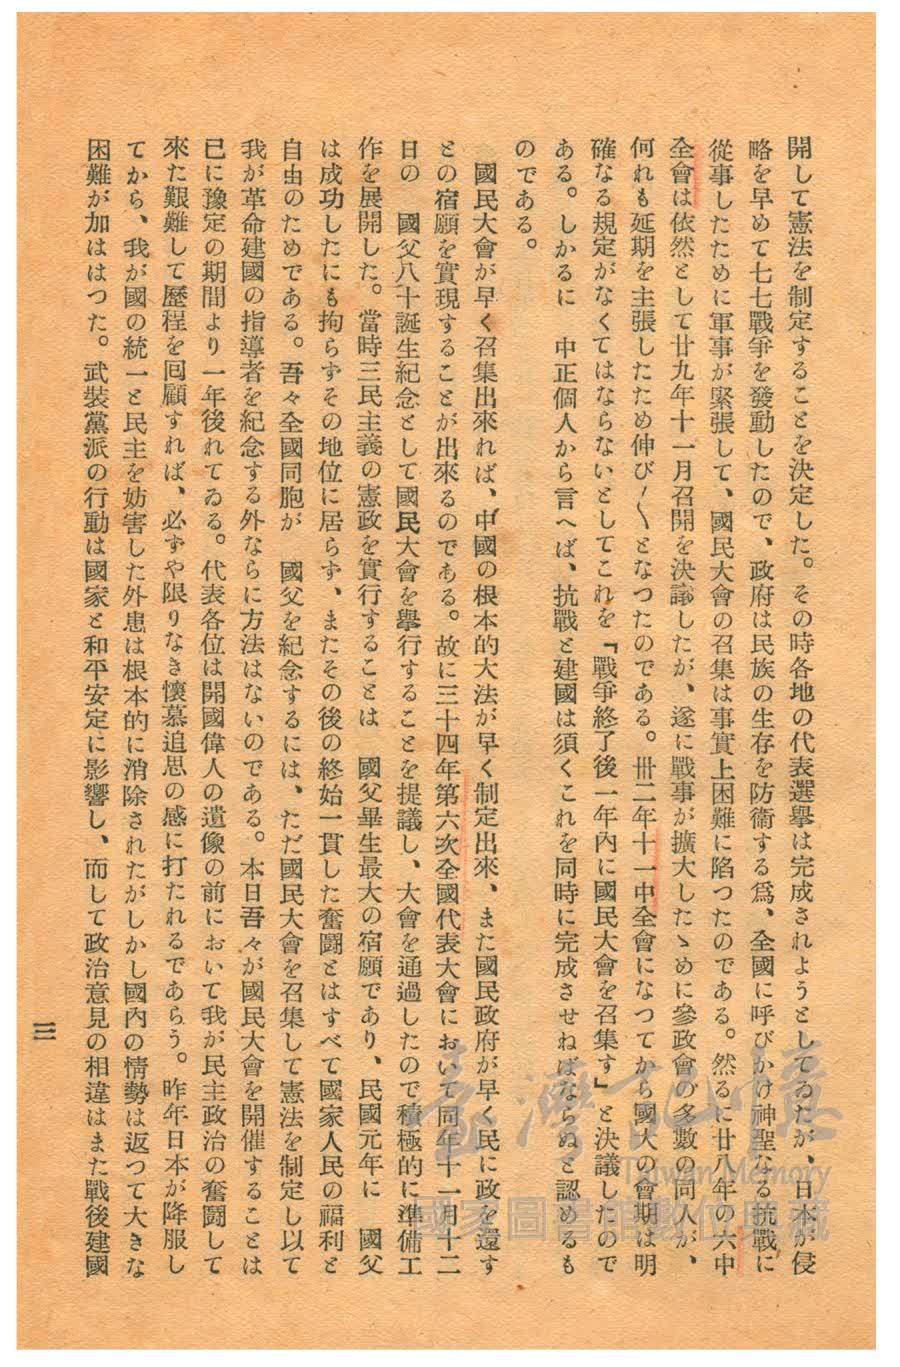 開して憲法を制定することを決定した。その時各地の代表選擧は完成されようとしてゐたが、日本が侵
略を早めて七七戰爭を發動したので、政府は民族の生存を防衞する爲、全國に呼びかけ神聖なる抗戰に
從事したために軍事が緊張して、國民大會の召集は事實上困難に陷つたのである。然るに廿八年の六中
全會は依然として廿九年十一月召開を決議したが、遂に戰事が擴大したゝめに參政會の多數の同人が、
何れも延期を主張したため伸び〳〵となつたのである。卅二年十一中全會になつてから國大の會期は明
確なる規定がなくてはならないとしてこれを「戰爭終了後一年內に國民大會を召集す」と決議したので
ある。しかるに　中正個人から言へば、抗戰と建國は須くこれを同時に完成させねばならぬと認めるも
のである。
　國民大會が早く召集出來れば、中國の根本的大法が早く制定出來、また國民政府が早く民に政を還す
との宿願を實現することが出來るのである。故に三十四年第六次全國代表大會において同年十一月十二
日の　國父八十誕生紀念として國民大會を擧行することを提議し、大會を通過したので積極的に準備工
作を展開した。當時三民主義の憲政を實行することは　國父畢生最大の宿願であり、民國元年に　國父
は成功したにも拘らずその地位に居らず、またその後の終始一貫した奮鬪とはすべて國家人民の福利と
自由のためである。吾々全國同胞が　國父を紀念するには、ただ國民大會を召集して憲法を制定し以て
我が革命建國の指導者を紀念する外ならに方法はないのである。本日吾々が國民大會を開催することは
已に豫定の期間より一年後れてゐる。代表各位は開國偉人の遺像の前において我が民主政治の奮鬪して
來た艱難して歷程を囘顧すれば、必ずや限りなき懷慕追思の感に打たれるであらう。昨年日本が降服し
てから、我が國の統一と民主を妨害した外患は根本的に消除されたがしかし國內の情勢は返つて大きな
困難が加ははつた。武裝黨派の行動は國家と和平安定に影響し、而して政治意見の相違はまた戰後建國
三
臺灣記憶
Taiwan Memory
國家圖書館數位典藏